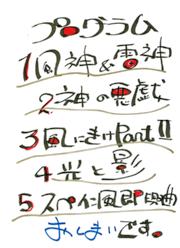 プログラム
1 風神&雷神
2 神の悪戯
3 風にきけPartⅡ
4 光と影
5 スペイン風即興曲
おしまいです。